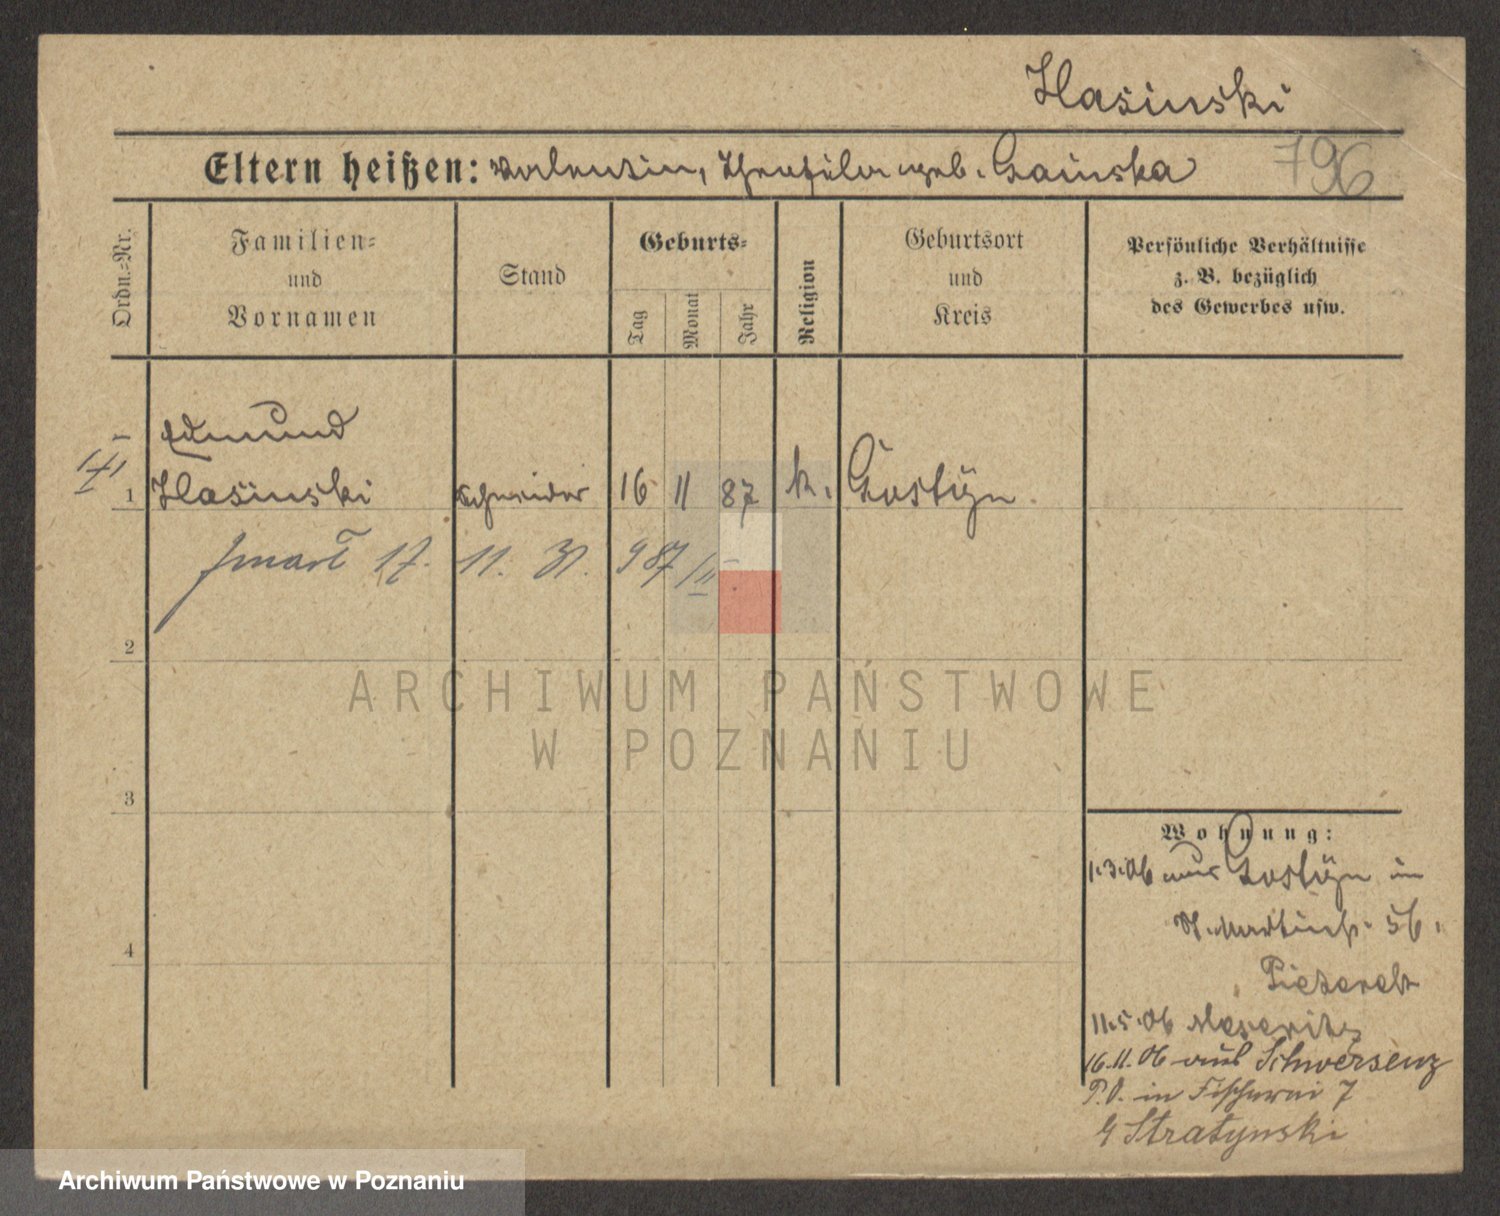 Hasinski
Eltern heißen: Valentin, Theofila geb. Gainska 796
Ordn.=Nr.
Familien=
und
Vornamen
Stand
Geburts=
Tag
Monat
Jahr
Religion
Geburtsort
und
Kreis
Persönliche Verhältnisse
z. B. bezüglich
des Gewerbes usw.
Edmund
1 Hasinski Schneider 16 11 87 k. Gostÿn
17. 11. 31.
2
ARCHIWUM PAŃSTWOWE
W POZNANIU
3
Wohnung:
1.3.06 aus Gostÿn in
St. Martinstr. 56.
4
11.5.06 Meseritz
16.11.06 aus Schwersenz
P.O. in Fischerei 7
Stratynski
Archiwum Państwowe w Poznaniu